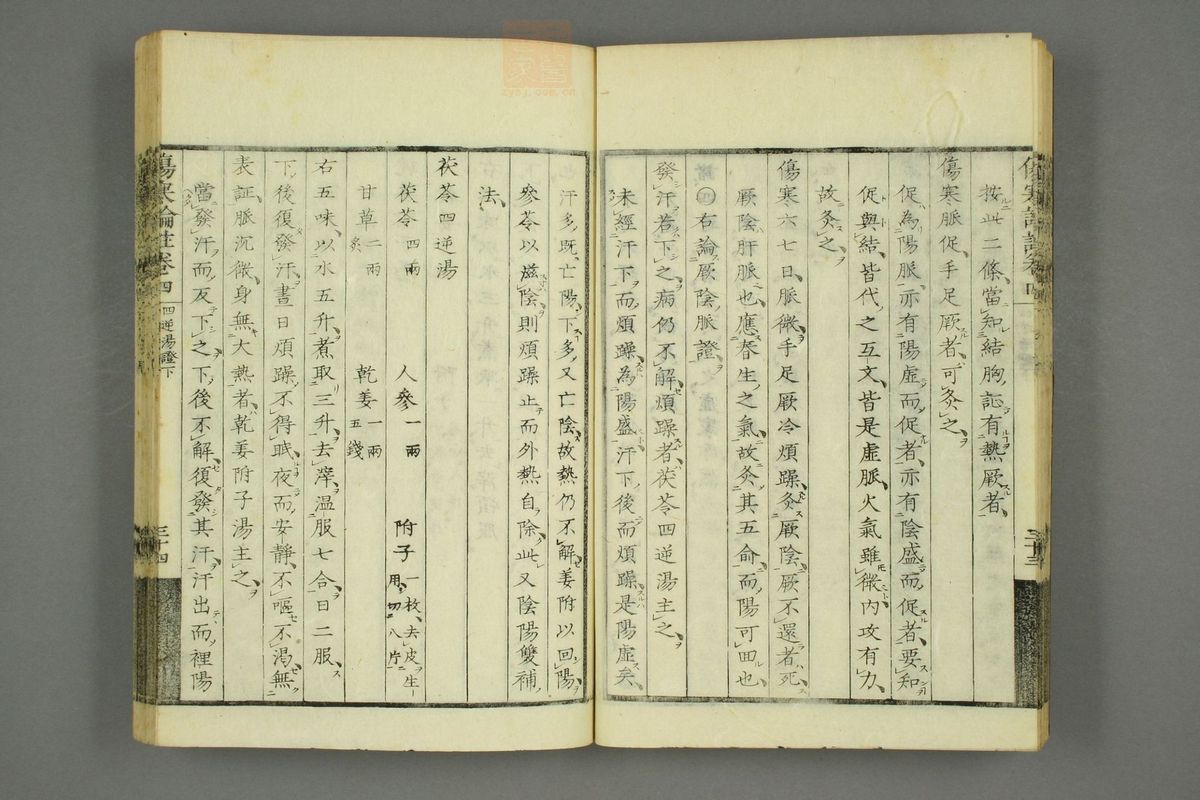 按此二條當知結胸証有熱厥者
傷寒脈促手足厥者可灸之
促為陽脈亦有陽虛而促者亦有陰盛而促者要知
促與結皆代之互文皆是虛脈火氣雖微内攻有力
故灸之
傷寒六七日脈微手足厥冷煩躁灸厥陰厥不還者死
厥陰肝脈也應春生之氣故灸其五俞而陽可回也
右論厥陰脈證
發汗若下之病仍不解煩躁者茯苓四逆湯主之
未經汗下而煩躁為陽盛汗下後而煩躁是陽虛矣
汗多既亡陽下多又亡陰故熱仍不解姜附以回陽
參苓以滋陰則煩躁止而外熱自除此又陰陽雙補
法
茯苓四逆湯
茯苓四兩 人參一兩 附子一枚去皮生用切八片
甘草二兩炙 乾姜一兩五錢
右五味以水五升煮取三升去滓温服七合日二服
下後復發汗晝日煩躁不得眠夜而安靜不嘔不渴無
表証脈沉微身無大熱者乾姜附子湯主之
當發汗而反下之下後不解復發其汗汗出而裡陽
傷寒論註卷四
四逆湯證下
三十四